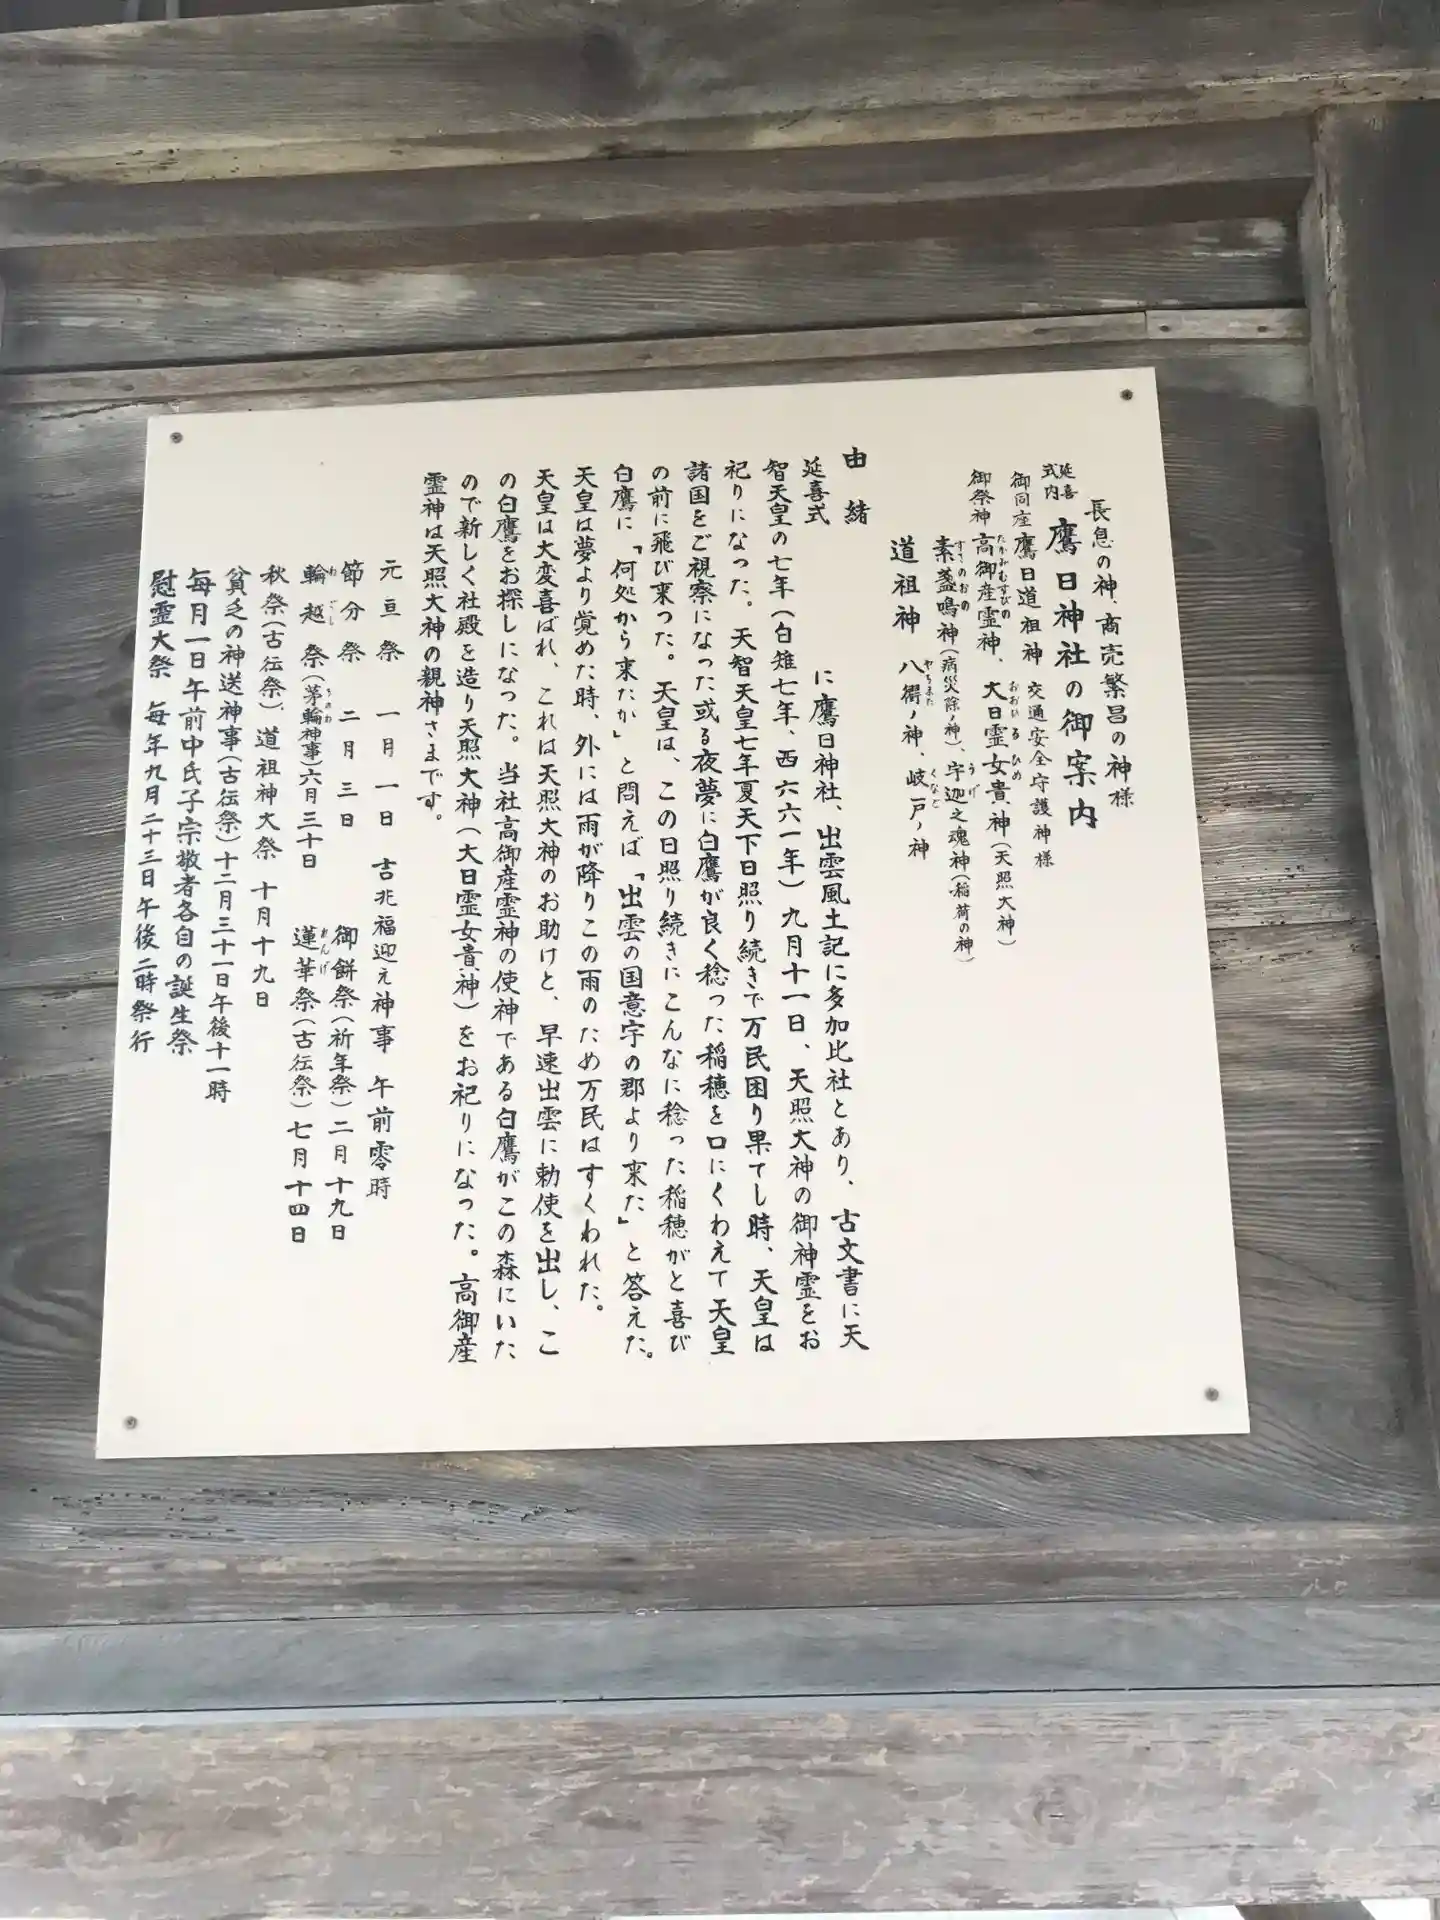 長息の神、商売繁昌の神様
延喜式内 鷹日神社の御案内
御同座 鷹日道祖神 交通安全守護神様
御祭神 高御産霊神、大日霊女貴神(天照大神)
たかみむすびの おおひるひめ
素盞鳴神(病災除ノ神)、宇迦之魂神(稲荷の神)
すさのおの うげ
道祖神 八衢ノ神、岐戸ノ神
やちまた くなど
由緒
延喜式に鷹日神社、出雲風土記に多加比社とあり、古文書に天
智天皇の七年(白雉七年、西六六一年)九月十一日、天照大神の御神霊をお
祀りになった。天智天皇七年夏天下日照り続きで万民困り果てし時、天皇は
諸国をご視察になった或る夜夢に白鷹が良く稔った稲穂を口にくわえて天皇
の前に飛び来った。天皇は、この日照り続きにこんなに稔った稲穂がと喜び
白鷹に「何処から来たか」と問えば「出雲の国意宇の郡より来た」と答えた。
天皇は夢より覚めた時、外には雨が降りこの雨のため万民はすくわれた。
天皇は大変喜ばれ、これは天照大神のお助けと、早速出雲に勅使を出し、こ
の白鷹をお探しになった。当社高御産霊神の使神である白鷹がこの森にいた
ので新しく社殿を造り天照大神(大日霊女貴神)をお祀りになった。高御産
霊神は天照大神の親神さまです。
元亘祭 一月一日 吉兆福迎え神事 午前零時
節分祭 二月三日 御餅祭(祈年祭)二月十九日
輪越祭(茅輪神事)六月三十日 蓮華祭(古伝祭)七月十四日
わごし ちのわ れんげ
秋祭(古伝祭)、道祖神大祭 十月十九日
貧乏の神送神事(古伝祭)十二月三十一日午後十一時
毎月一日午前中氏子宗敬者各自の誕生祭
慰霊大祭 毎年九月二十三日午後二時祭行